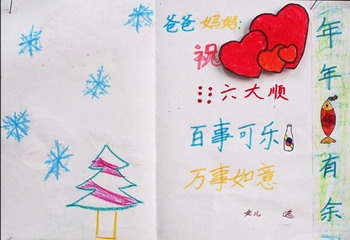 爸爸 妈妈:
祝
六大顺
百事可乐
万事如意
女儿 送
年年有余